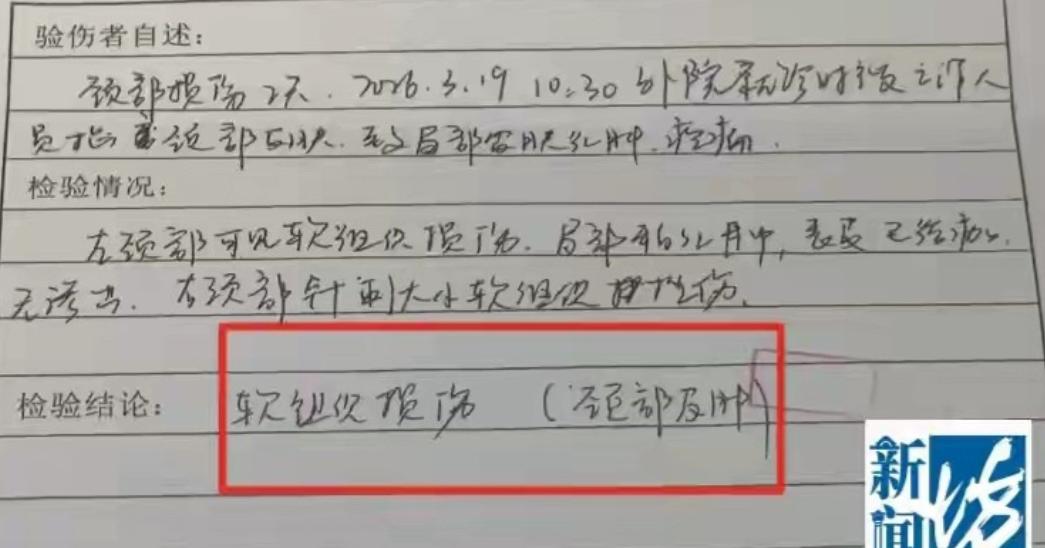 验伤者自述：
颈部损伤2天. 2026.3.19 10:30 外院就诊时被工作人
员 颈部皮肤. 致局部皮肤红肿. 疼痛.
检验情况：
左颈部可见软组织损伤. 局部 红肿, 已结痂.
无渗出. 右颈部针 大小软组织 伤.
检验结论： 软组织损伤 (颈部皮肤)
新闻坊